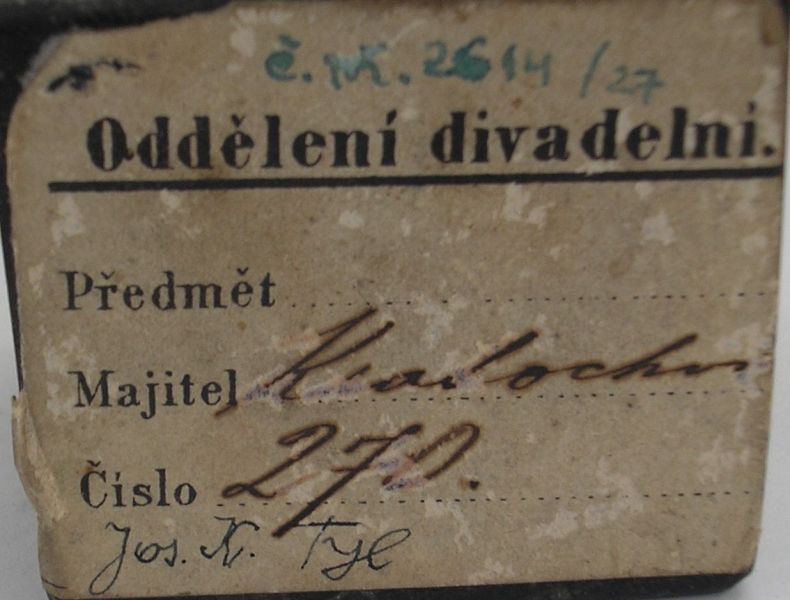 č. 2614/27
Oddělení divadelní.
Předmět
Majitel
Číslo 270.
Jos. K. Tyl